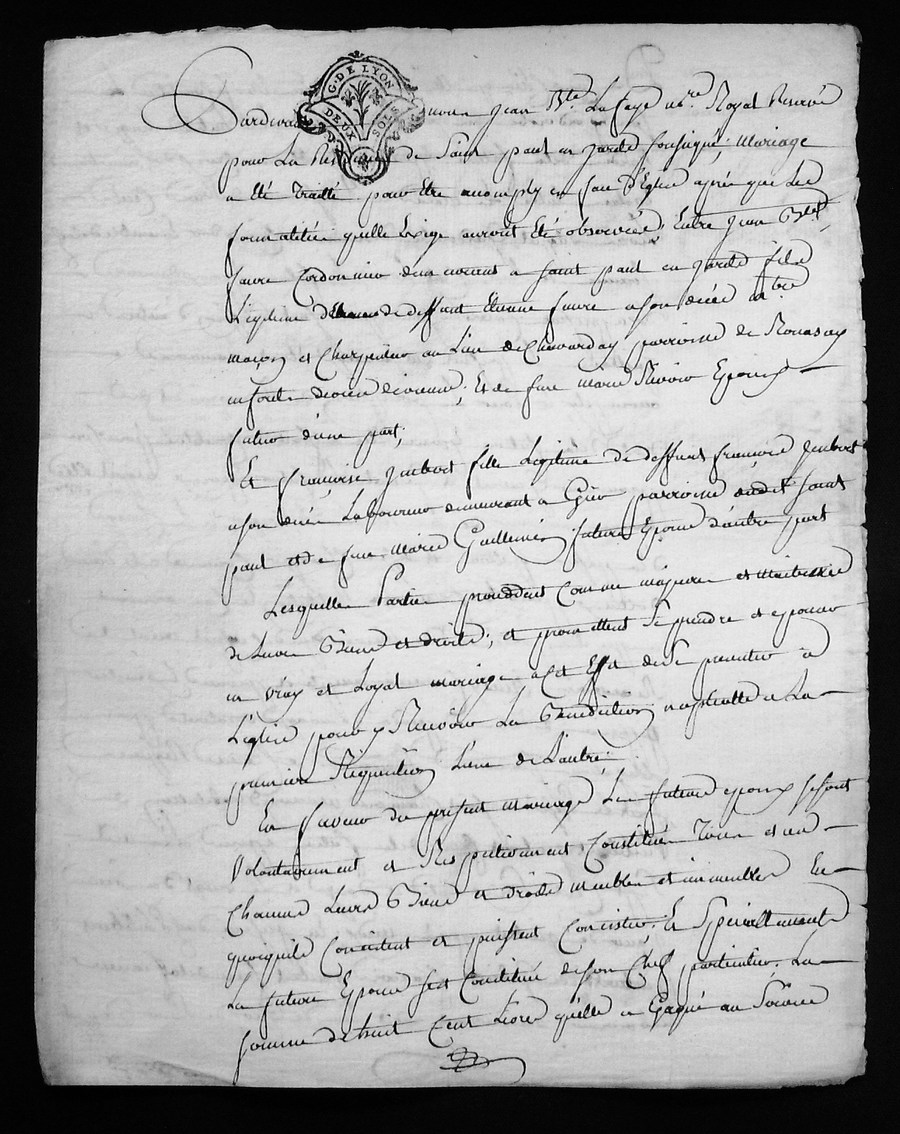 G. DE LYON
DEUX SOLS
Pardevant Jean Bte La Faye nre Royal Reservé
pour La de Saint paul en Jarêts soussigné; Mariage
a Eté Traitté pour Etre accomply en face d'Eglise après que Les
formalitées qu'elle Exige auront Eté observées; Entre Jean Bte
favre Cordonnier demeurant a Saint paul en Jarêts fils
Légitime de deffunt Etienne favre a son décès me
maçon et Charpentier au Lieu de parroisse de
; Et de feue marie Epoux
futur d'une part;
Et françoise Jambert fille Légitime de deffunt françois Jambert
a son décès Laboureur demeurant a parroisse dudit Saint
paul et de feue Marie Guillemin future Epouse d'autre part
Lesquelles Parties procedent Comme majeures et maitresses
de Leurs Biens et droits; et promettent Se prendre et epouser
en vray et Loyal mariage a Cet Effet de Se presenter à
L'église pour y Recevoir La Bénédiction nuptialle a La
premiere Réquisition L'une de L'autre;
En faveur du présent mariage Les futurs epoux se sont
Volontairement et Respectivement Constitués Tous et un
Chacuns Leurs Biens et droits meubles et immeubles En
quoiquils Consistent et puissent Concister; Et Spéciallement
La future Epouse s'est Constituée de son Chef particulier, La
somme de huit Cent Livres qu'elle a Gagné au Service